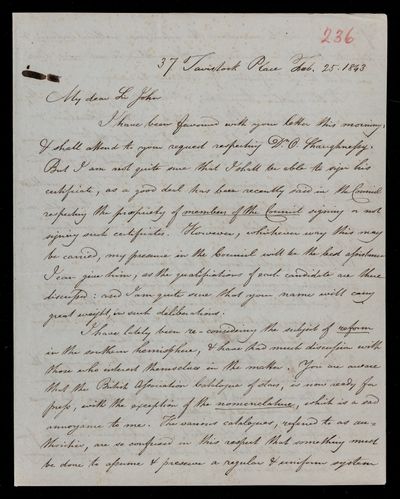 236
37 Tavistock Place Feb. 25. 1843
My dear Sir John
I have been favoured with your letter this morning,
& shall attend to your request respecting Dr. O. Shaughnessy.
But I am not quite sure that I shall be able to sign his
certificate, as a good deal has been recently said in the Council
respecting the propriety of members of the Council signing or not
signing such certificates. However, whichever way this may
be carried, my presence in the Council will be the best assistance
I can give him, as the qualifications of each candidate are there
discussed: and I am quite sure that your name will carry
great weight in such deliberations.
I have lately been re-considering the subject of reform
in the southern hemisphere, & have had much discussion with
those who interest themselves in the matter. You are aware
that the British Association Catalogue of stars, is now ready for
press, with the exception of the nomenclature, which is a sad
annoyance to me. The various catalogues, referred to as au-
thorities, are so confused in this respect that something must
be done to assume & preserve a regular & uniform system